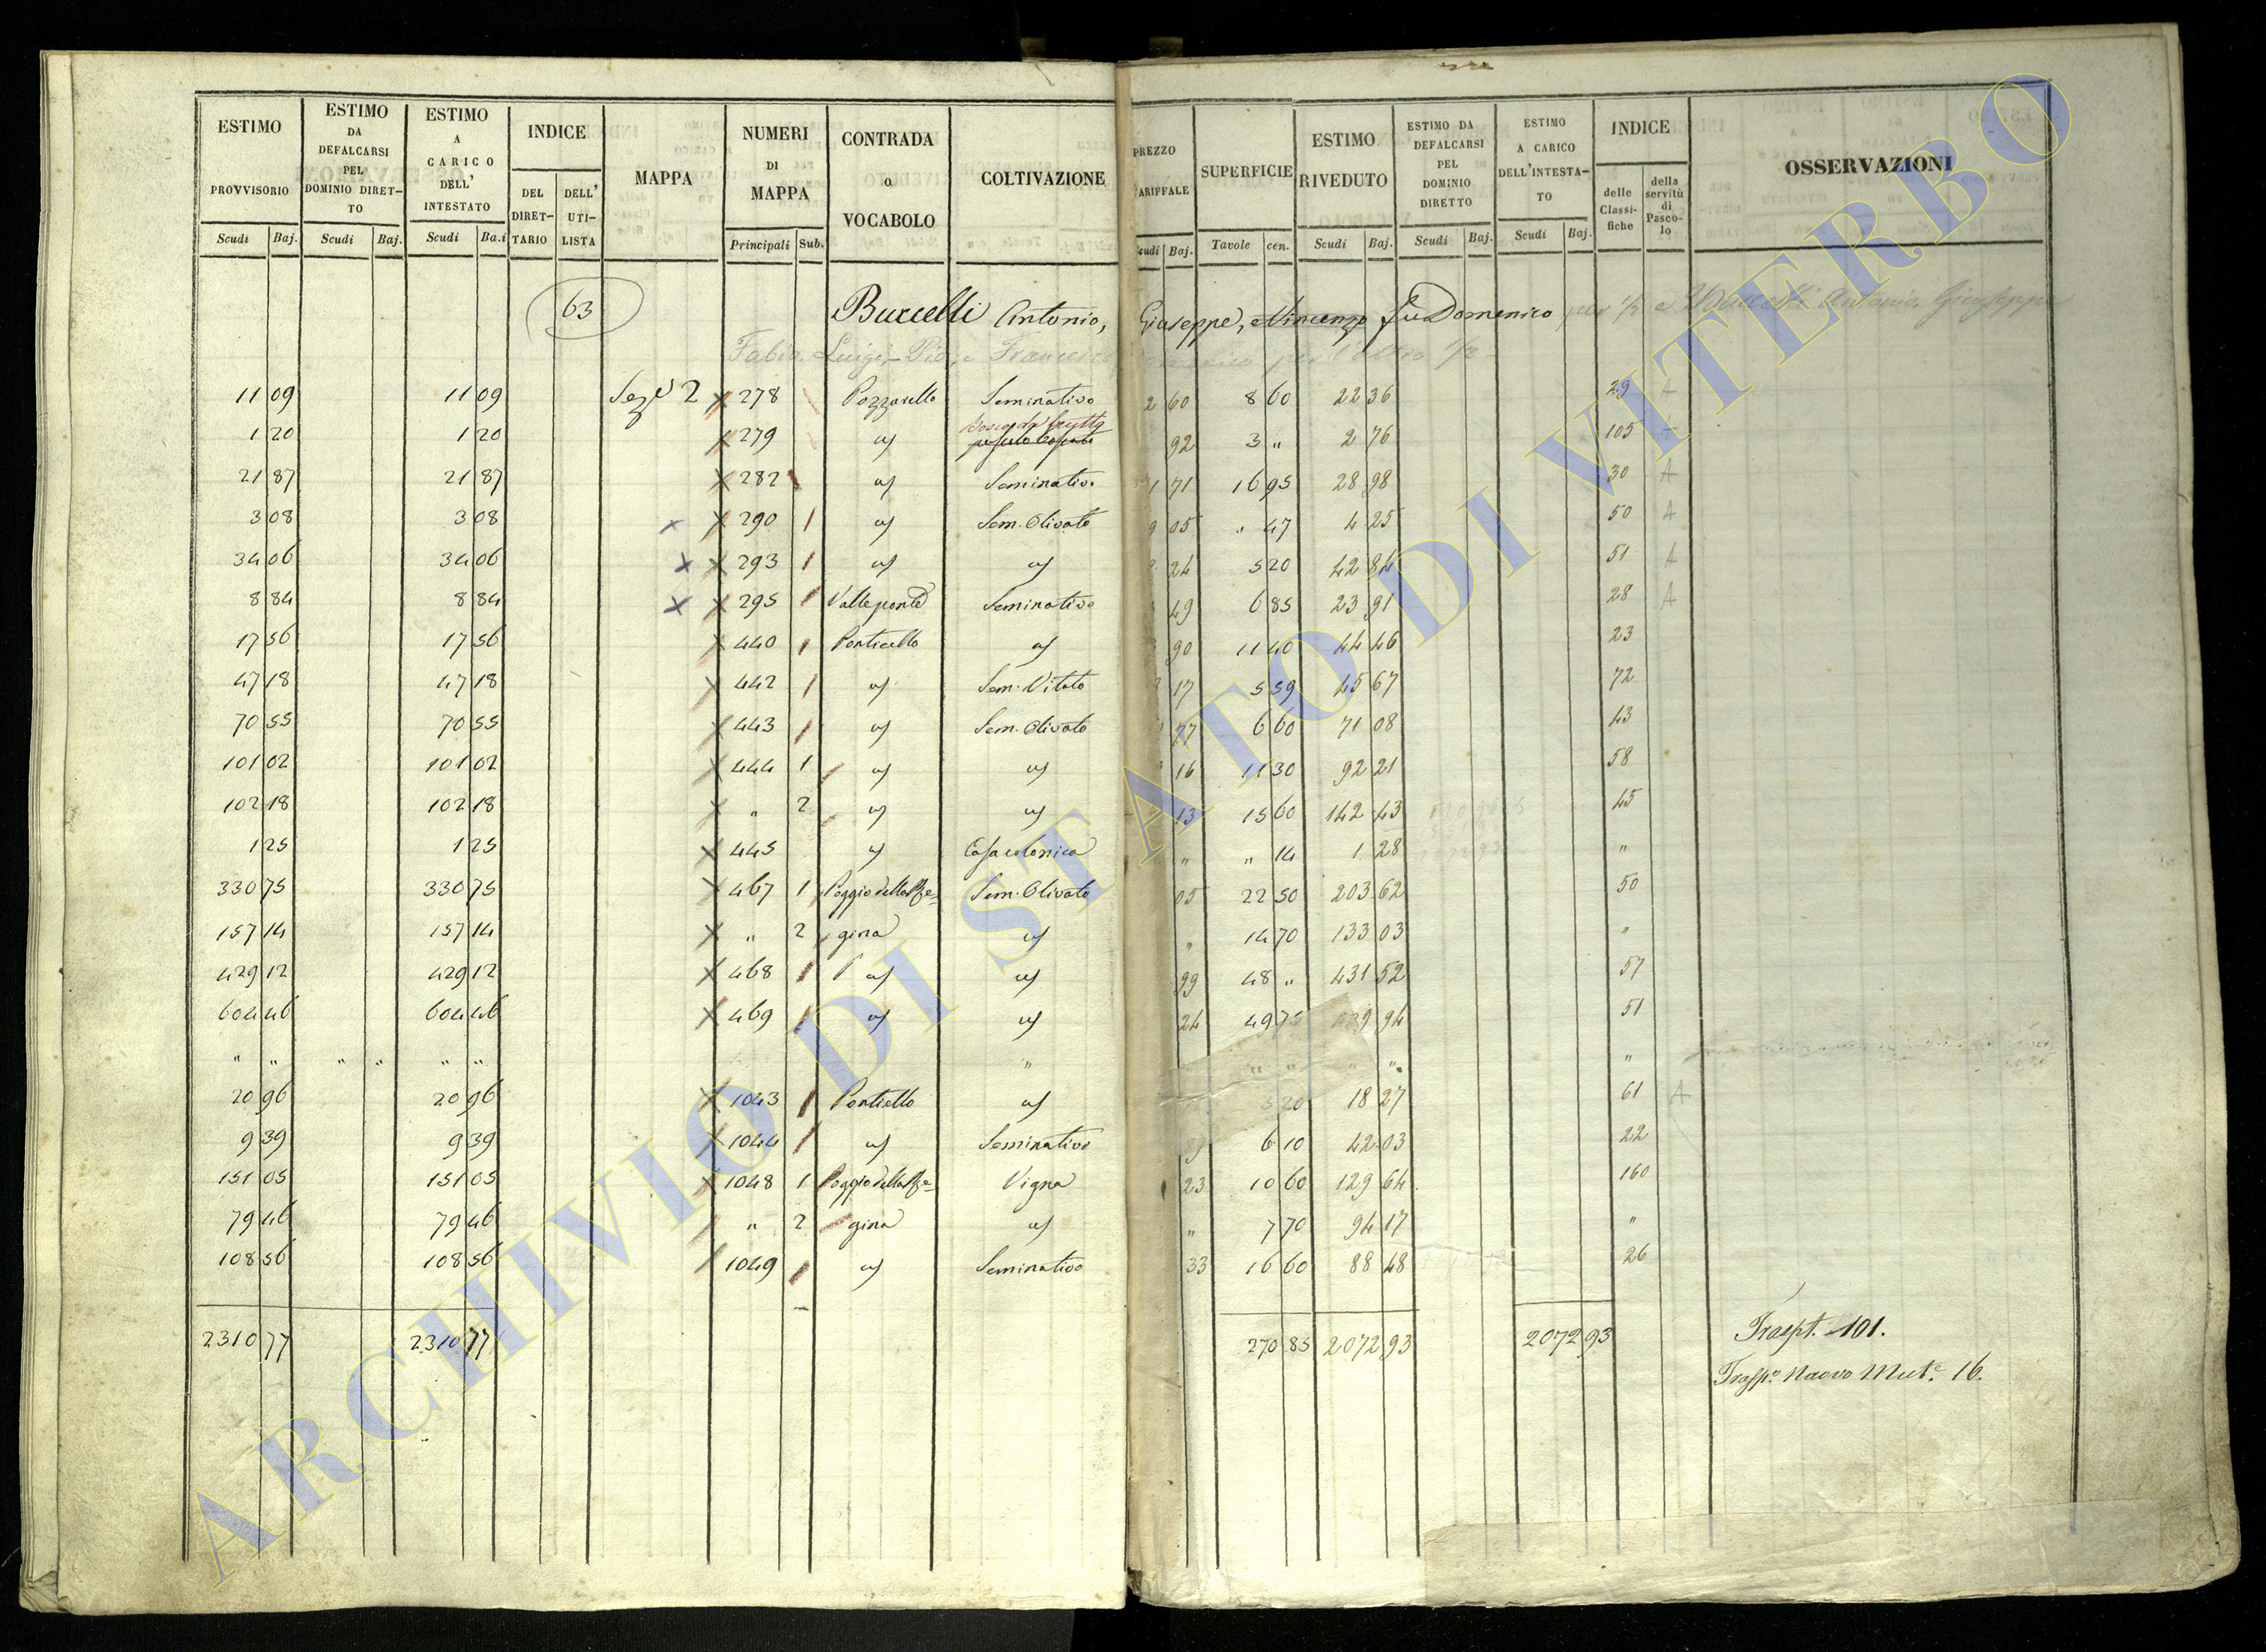 ESTIMO PROVVISORIO Scudi Baj. | ESTIMO DA DEFALCARSI PEL DOMINIO DIRETTO Scudi Baj. | ESTIMO A CARICO DELL' INTESTATO Scudi Ba.i | INDICE DEL DIRET-TARIO DELL' UTI-LISTA | MAPPA | NUMERI DI MAPPA Principali Sub. | CONTRADA O VOCABOLO | COLTIVAZIONE | PREZZO TARIFFALE Scudi Baj. | SUPERFICIE Tavole cen. | ESTIMO RIVEDUTO Scudi Baj. | ESTIMO DA DEFALCARSI PEL DOMINIO DIRETTO Scudi Baj. | ESTIMO A CARICO DELL'INTESTA-TO Scudi Baj. | INDICE delle Classi-fiche della servitù di Pasco-lo | OSSERVAZIONI
63 Buccelli Antonio, Giuseppe, e Vincenzo fu Domenico per ½ e Antonio, Giuseppe
Fabio, Luigi, Pio, e Francesco per l'altro ½
11 09 11 09 Sez.e 2 278 Pozzarello Seminativo 2 60 8 60 22 36 29 A
1 20 1 20 279 id Bosco da frutto 92 3 " 2 76 105 A
21 87 21 87 282 id Seminativo 1 71 16 95 28 98 30 A
3 08 3 08 290 id Sem. Olivato 9 05 " 47 4 25 50 A
34 06 34 06 293 id id 24 5 20 42 84 51 A
8 84 8 84 295 Valleponte Seminativo 49 6 85 23 91 28 A
17 56 17 56 440 Ponticello id 90 11 40 44 46 23
47 18 47 18 442 id Sem. Vitato 17 5 59 45 67 72
70 55 70 55 443 id Sem. Olivato 77 6 60 71 08 43
101 02 101 02 444 1 id id 16 11 30 92 21 58
102 18 102 18 " 2 id id 13 15 60 142 43 45
1 25 1 25 445 id Casa colonica " " 14 1 28 "
330 75 330 75 467 1 Poggio della Re= Sem. Olivato 05 22 50 203 62 50
157 14 157 14 " 2 gina id " 14 70 133 03 "
429 12 429 12 468 id id 99 48 " 431 52 57
604 46 604 46 469 id id 24 49 75 94 51
" " " " " " " " " " " "
20 96 20 96 1043 Ponticello id 5 20 18 27 61 A
9 39 9 39 1044 id Seminativo 6 10 42 03 22
151 05 151 05 1048 1 Poggio della Re= Vigna 23 10 60 129 64 160
79 46 79 46 " 2 gina id " 7 70 94 17 "
108 56 108 56 1049 id Seminativo 33 16 60 88 48 26
2310 77 2310 77 270 85 2072 93 2072 93 Traspt. 101.
Trasp.o Nuovo Mut.e 16.
ARCHIVIO DI STATO DI VITERBO